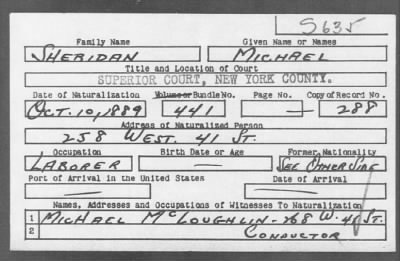 S635
Family Name Given Name or Names
SHERIDAN MICHAEL
Title and Location of Court
SUPERIOR COURT, NEW YORK COUNTY.
Date of Naturalization Volume or Bundle No. Page No. Copy of Record No.
OCT. 10, 1889 441 — 288
Address of Naturalized Person
258 WEST. 41 ST.
Occupation Birth Date or Age Former Nationality
LABORER — SEE OTHER SIDE
Port of Arrival in the United States Date of Arrival
— —
Names, Addresses and Occupations of Witnesses To Naturalization
1 MICHAEL McLOUGHLIN - 268 W. 41 ST.
2 CONDUCTOR